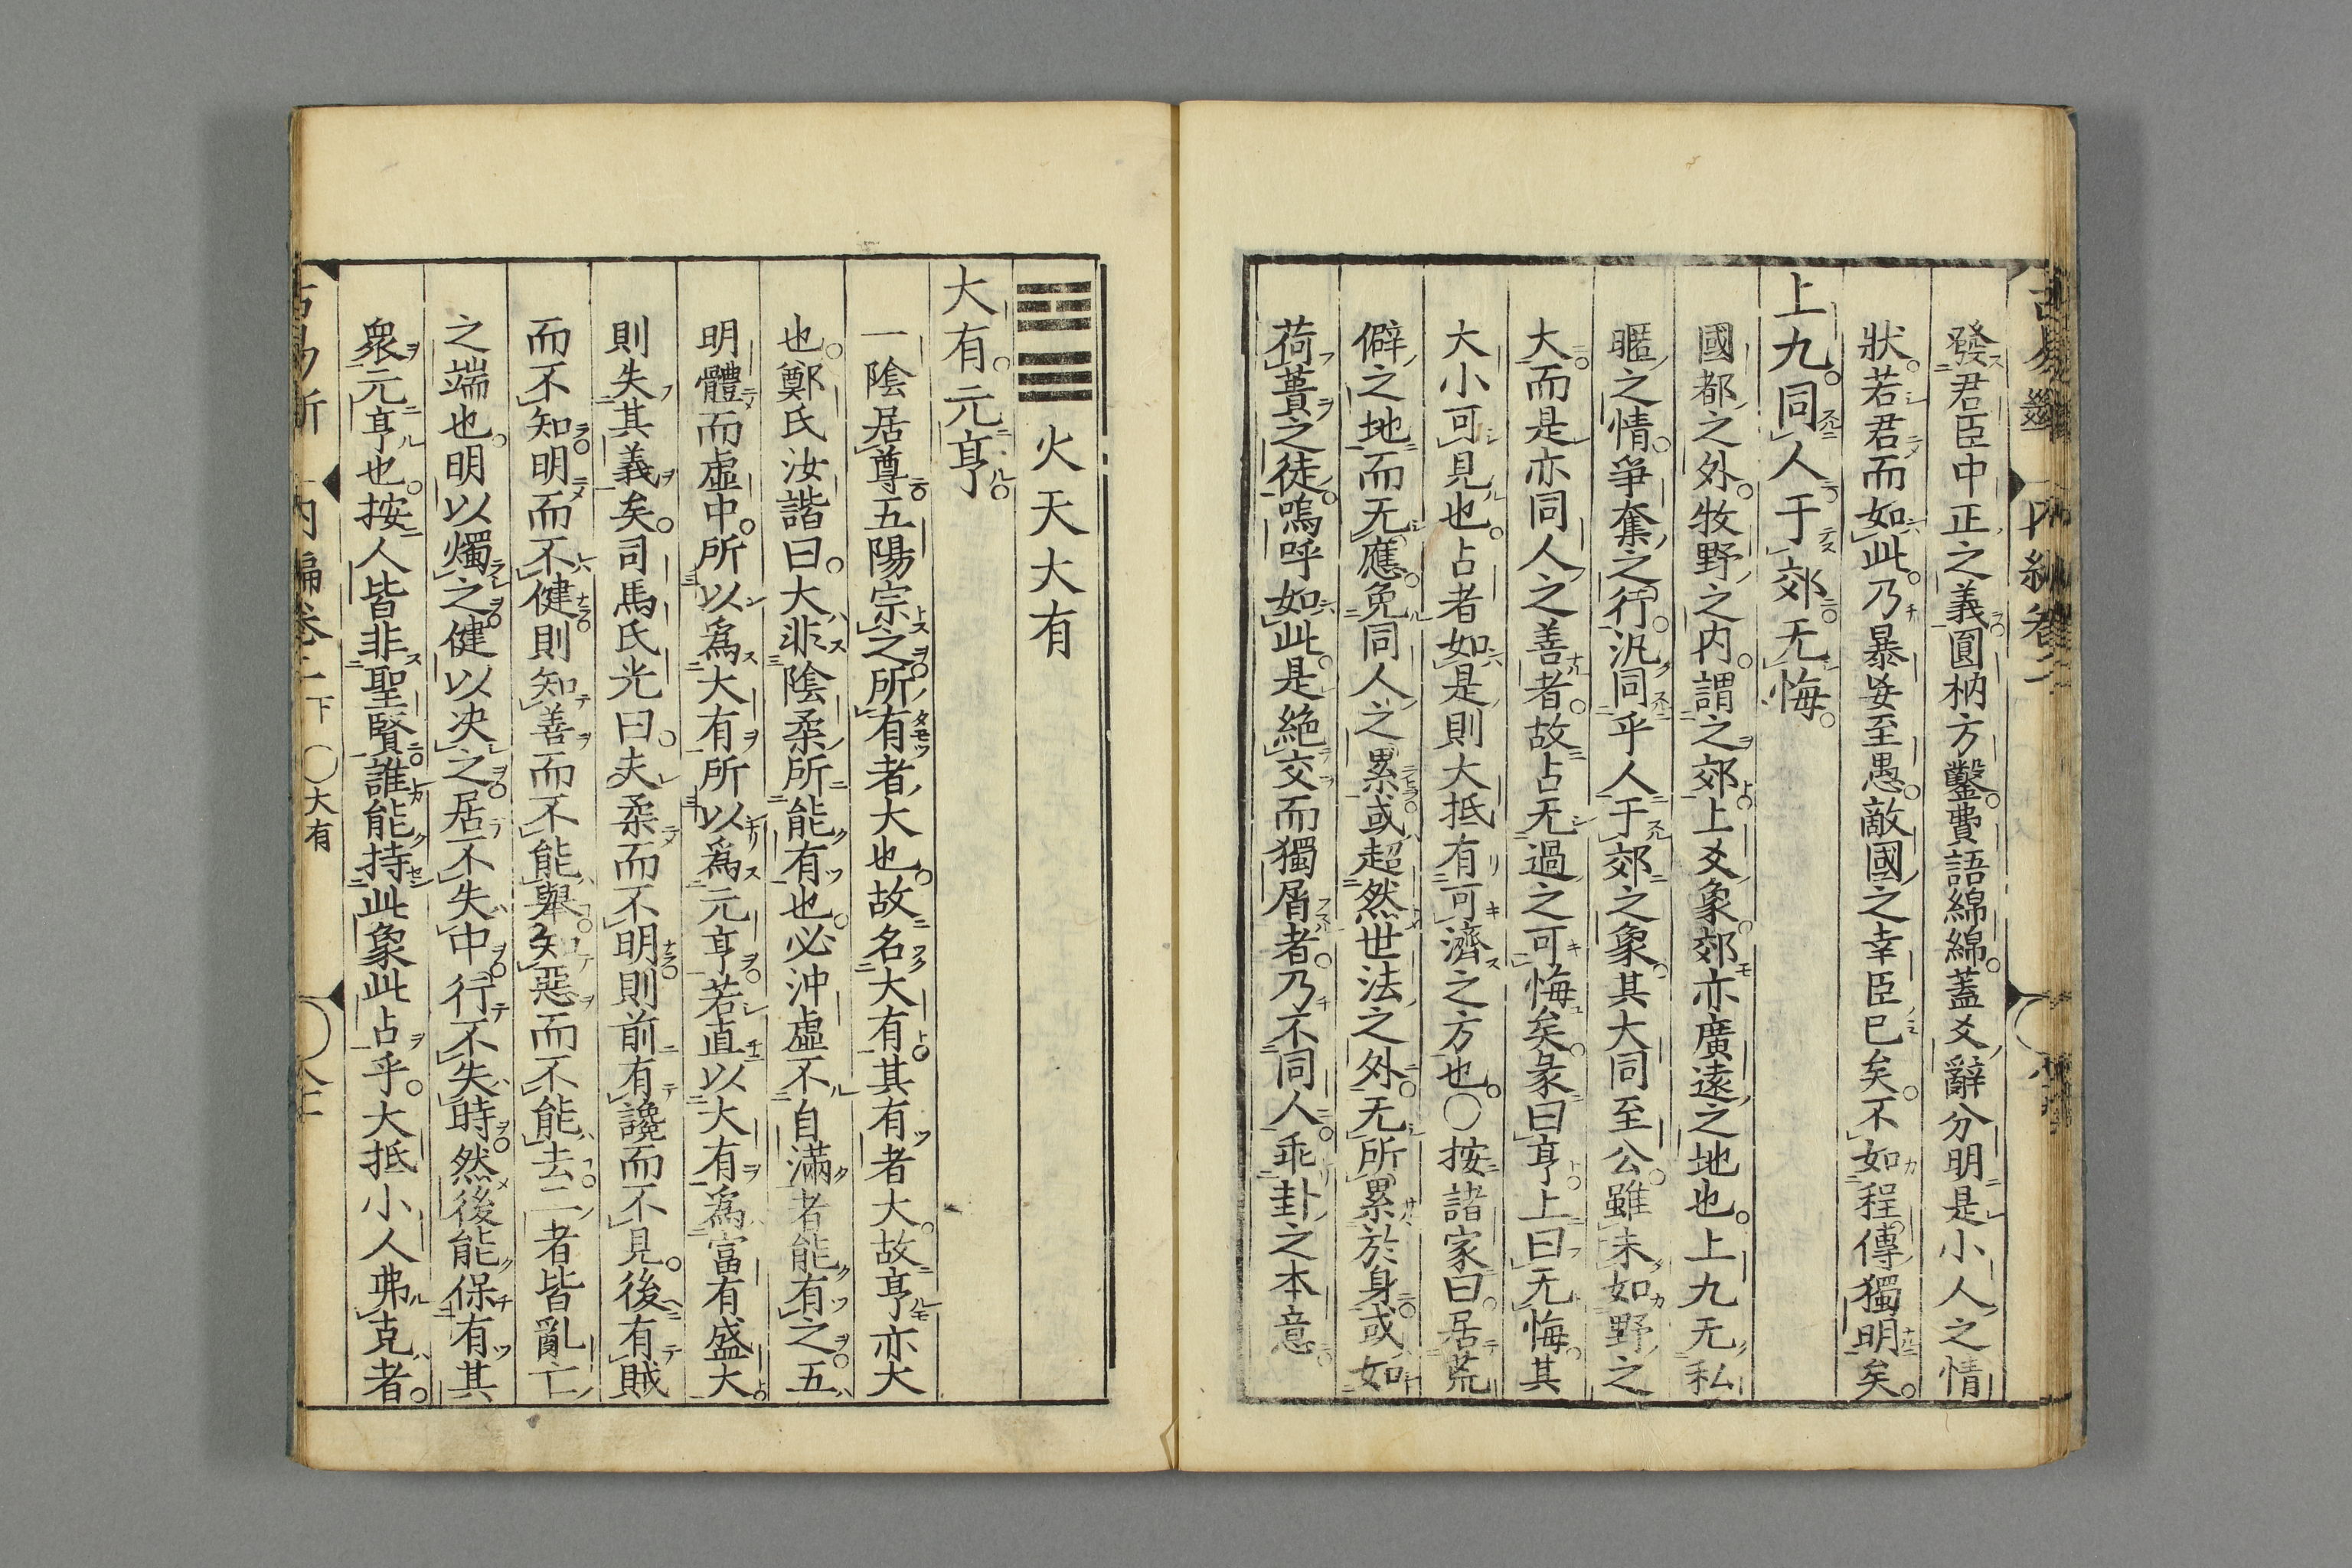 發君臣中正之義圓枘方鑿費語綿綿。蓋爻辭分明是小人之情
狀。若君而如此。乃暴妛至愚。敵國之幸臣已矣。不如程傳獨明矣。
上九。同人于郊。无悔。
國都之外。牧野之内。謂之郊。上爻象。郊亦廣遠之地也。上九无私
暱之情。爭奪之行。汎同乎人于郊之象。其大同至公。雖未如野之
大。而是亦同人之善者。故占无過之可悔矣。彖曰亨。上曰无悔。其
大小可見也。占者如是則大抵有可濟之方也。〇按諸家曰。居荒
僻之地而无應。免同人之累。或超然世法之外。无所累於身。或如
荷蕢之徒。嗚呼如此。是絕交而獨屑者。乃不同人。乖卦之本意
火天大有
大有。元亨。
一陰居尊五陽宗之所有者大也。故名大有。其有者大。故亨亦大
也。鄭氏汝諧曰。大非陰柔所能有也。必沖虛不自滿者能有之。五
明體而虛中。所以爲大有。所以爲元亨。若直以大有爲富有盛大。
則失其義矣。司馬氏光曰。夫柔而不明則前有讒而不見。後有賊
而不知。明而不健則知善而不能舉。知惡而不能去。二者皆亂亡
之端也。明以燭之。健以决之。居不失中。行不失時。然後能保有其
衆。元亨也。按人皆非聖賢。誰能持此象此占乎。大抵小人弗克者。
内編卷二下 〇大有